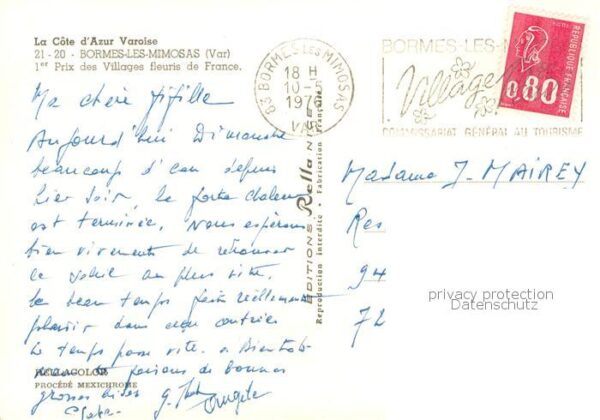 La Côte d'Azur Varoise
21-20 - BORMES-LES-MIMOSAS (Var)
1er Prix des Villages fleuris de France.
Ma chère fifille
Aujourd'hui Dimanche
beaucoup d'eau depuis
hier soir, la forte chaleur
est terminée. Nous espérons
bien vivement de retrouver
le soleil au plus vite.
le beau temps fait tellement
plaisir dans ces contrées
Le temps passe vite. à Bientôt
de bonnes
grosses bises
RELLACOLOR
PROCÉDÉ MEXICHROME
EDITIONS Rella NICE
Reproduction interdite - Fabrication Française
83 BORMES LES MIMOSAS
18 H
10-
VAR
BORMES-LES-M
Village
COMMISSARIAT GÉNÉRAL AU TOURISME
REPUBLIQUE FRANÇAISE
0,80
Madame J. MAIREY
Res
94
72
privacy protection
Datenschutz